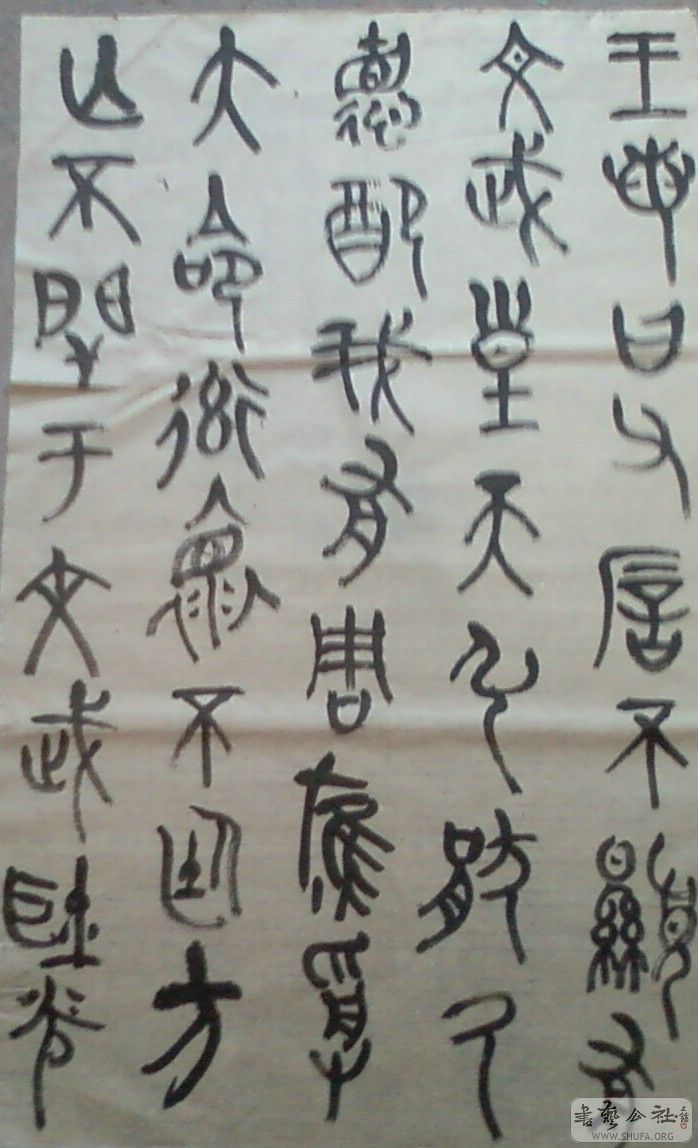 王若曰父㕆不顯
文武皇天弘猒厥
德配我有周膺受
大命率懷不廷方
亡不閈于文武耿光
書藝公社
WWW.SHUFA.ORG